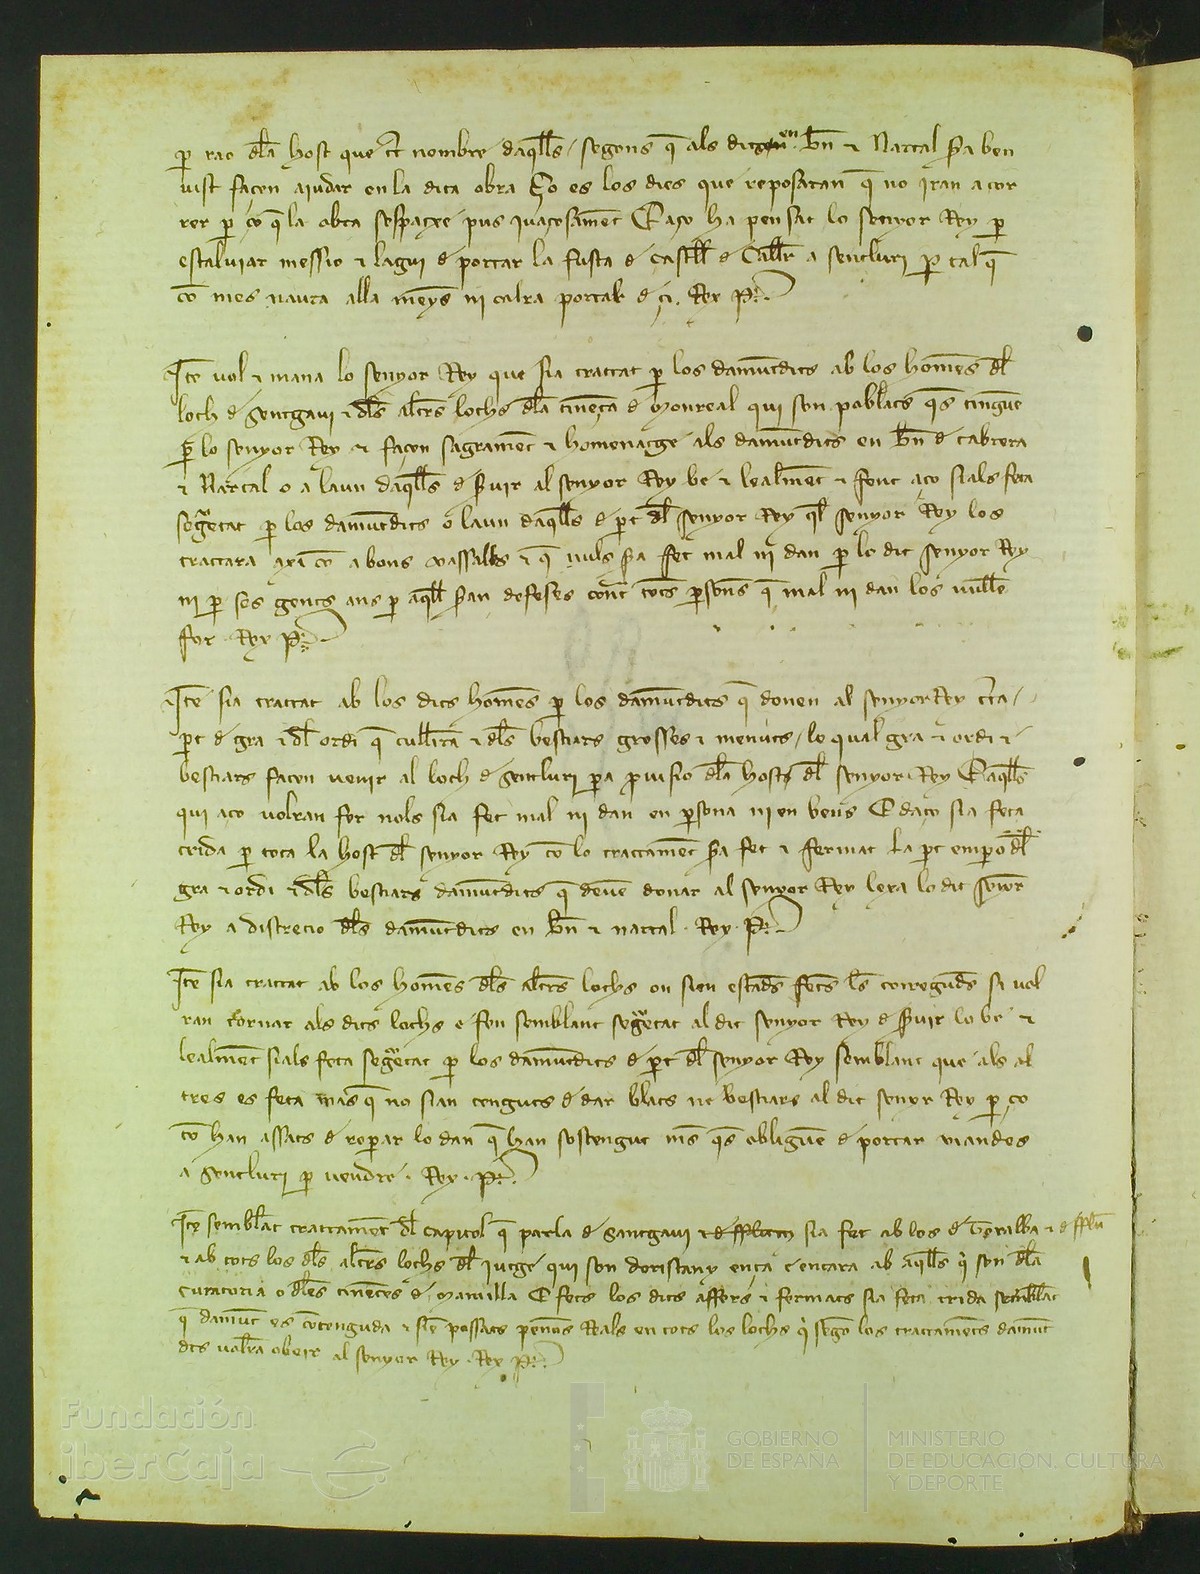 per rao dla host que cert nombre daqlls / segons q als dits en Bn ⁊ Nartal sia ben
vist façen aiudar en la dita obra Ço es los dies que reposaran q no iran a cor
rer per ço q la obra sespatxe pus iuaçosament E aço ha pensat lo senyor Rey per
estalviar messio ⁊ lagui d portar la fusta d Castell d Caller a sentluri per tal q
co mes naura alla menys ni calra portar d ci. Rey P.
Ite vol ⁊ mana lo senyor Rey que sia tractat per los damutdits ab los homes dl
loch d sentgaui ⁊ dls altrs lochs dla tineça d Monreal qui son poblats qs tingue
per lo senyor Rey ⁊ façen sagramet ⁊ homenatge als damutdits en Bn d Cabrera
⁊ Nartal o a laun daqlls d suir al senyor Rey be ⁊ lealmet ⁊ fent aço sials feta
segretat per los damutdits o laun daqlls d part dl senyor Rey ql senyor Rey los
tractara axi co a bons vassalls ⁊ q nuls sia fet mal ni dan per lo dit senyor Rey
ni per ses gents ans per aqll sian defeses contr tots persons q mal ni dan los vulle
fer . Rey P.
Ite sia tractat ab los dits homes per los damutdits q donen al senyor Rey certa /
part d gra ⁊ dl ordi q cullira ⁊ dls bestiars grosses ⁊ menuts / lo qual gra ⁊ ordi ⁊
bestiars façen venir al loch d sentluri per a provisio dla host dl senyor Rey E aqlls
qui aço volran fer nols sia fet mal ni dan en persona ni en bens E daço sia feta
crida per tota la host dl senyor Rey co lo tractamet sia fet ⁊ fermat La part empero dl
gra ⁊ ordi ⁊ dls bestiars damutdits q deue donar al senyor Rey lexa lo dit senyor
Rey a discrecio dls damutdits en Bn ⁊ nartal . Rey . P.
Ite sia tractat ab los homes dls altrs lochs on sien estads fets ls corregudes si vol
ran tornar als dits lochs e fen semblant segretat al dit senyor Rey d suir lo be ⁊
lealmet sials feta segretat per los damutdits d part dl senyor Rey semblant que als al
tres es feta mas q no sian tenguts d dar blats ne bestiars al dit senyor Rey per ço
co han assats d reparar lo dan q han sostengut mes qs obligue d portar viandes
a sentluri per vendre . Rey . P.
Ite semblat tractamet dl capitol q parla d santgaui sia fet ab los d
⁊ ab tots los dls altrs lochs dl iutge qui son doristany ença e encara ab aqlls qi son dla
curatoria o dles tineçes d Marmilla E fets los dits affers ⁊ fermats sia feta crida semblat
q damut es cotenguda ⁊ sie possats penos Reals en tots los lochs qi sego los tractamets damut
dts volra obeir al senyor Rey . Rey P.
Fundación
iberCaja
GOBIERNO
DE ESPAÑA
MINISTERIO
DE EDUCACIÓN, CULTURA
Y DEPORTE